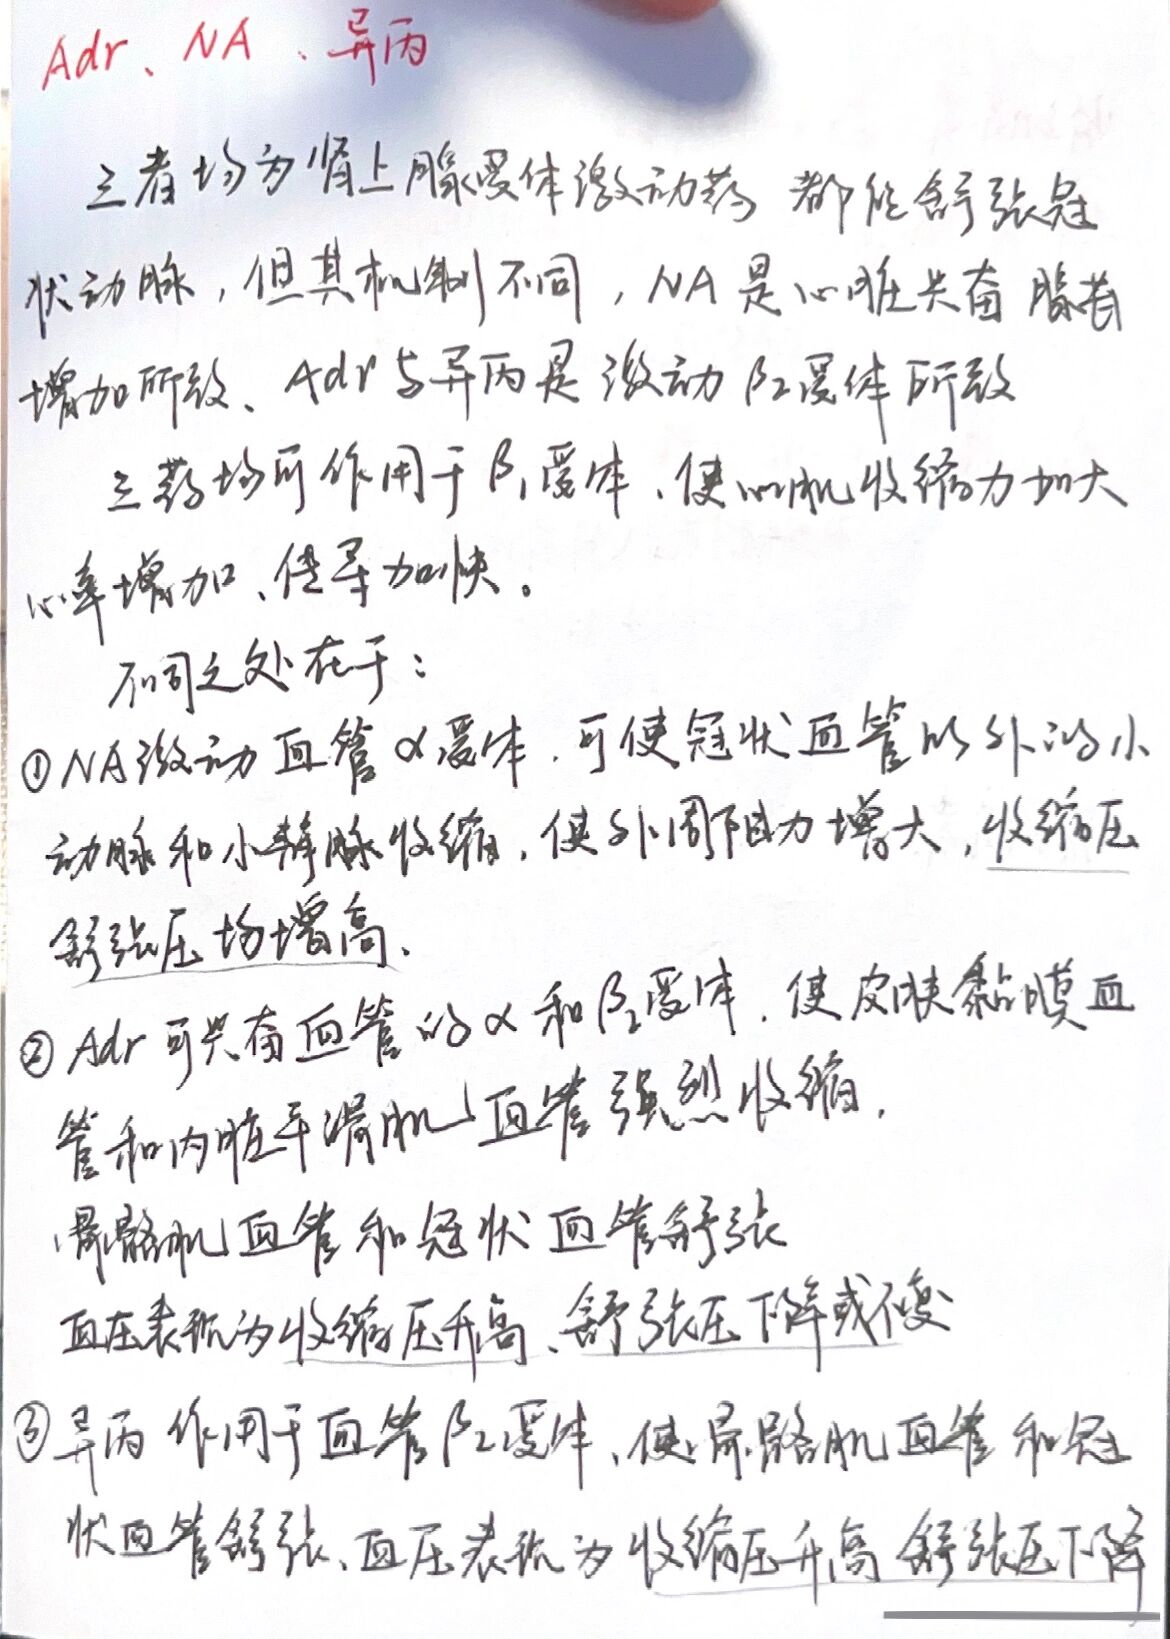 Adr、NA、异丙
三者均为肾上腺受体激动药 都能舒张冠
状动脉，但其机制不同，NA是心脏兴奋 腺苷
增加所致、Adr与异丙是激动β2受体所致
三药均可作用于β1受体、使心肌收缩力加大
心率增加、传导加快。
不同之处在于：
①NA激动血管α受体.可使冠状血管以外的小
动脉和小静脉收缩,使外周阻力增大,收缩压
舒张压均增高.
②Adr可兴奋血管的α和β2受体.使皮肤黏膜血
管和内脏平滑肌血管强烈收缩,
骨骼肌血管和冠状血管舒张
血压表现为收缩压升高、舒张压下降或不变
③异丙作用于血管β2受体、使骨骼肌血管和冠
状血管舒张、血压表现为收缩压升高 舒张压下降